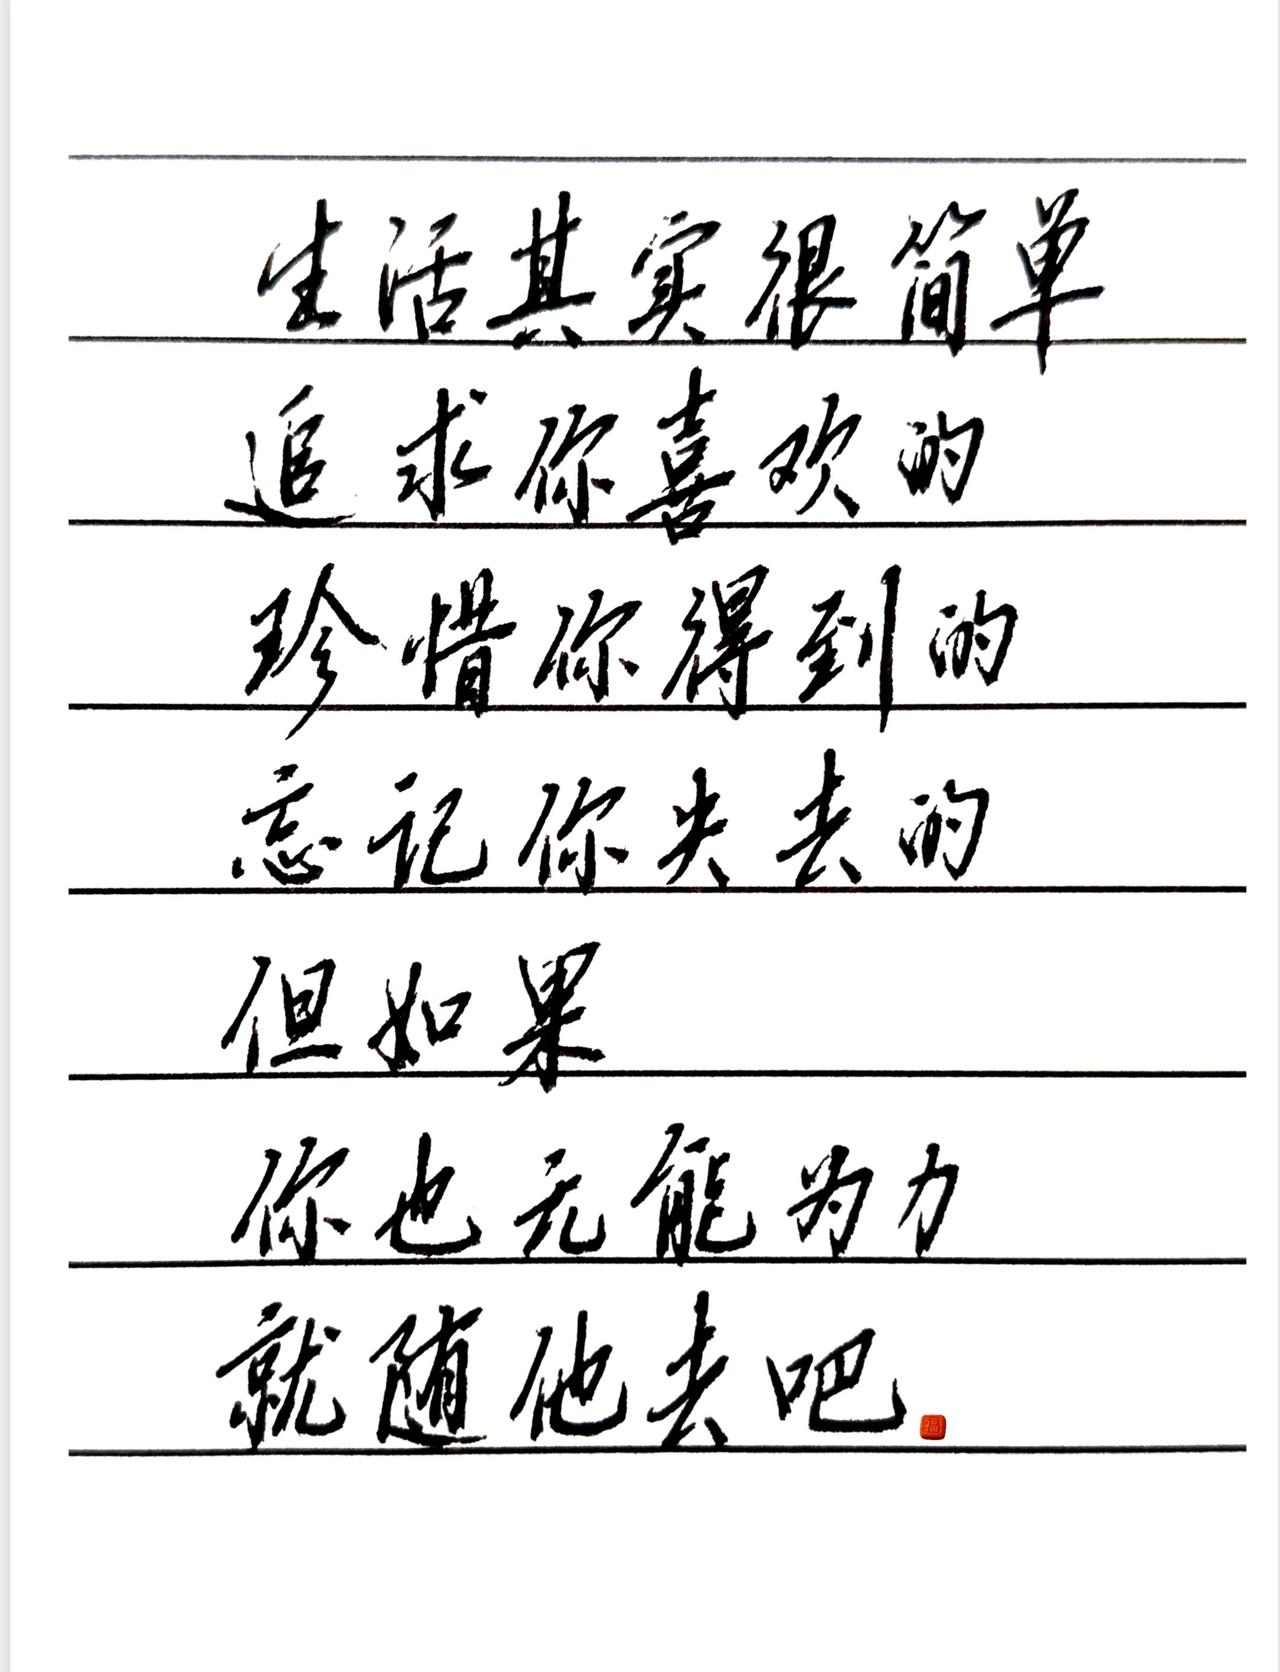 生活其实很简单
追求你喜欢的
珍惜你得到的
忘记你失去的
但如果
你也无能为力
就随他去吧
福